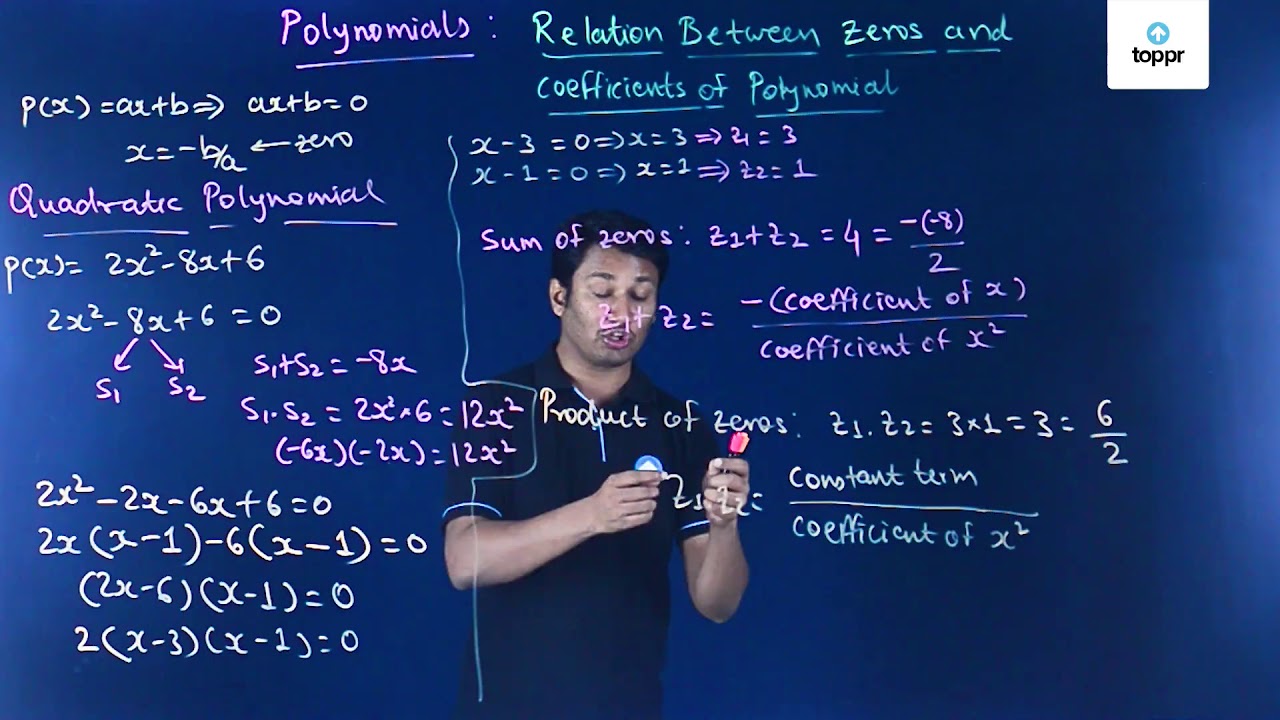 Polynomials: Relation Between Zeros and
coefficients of Polynomial
toppr
p(x) = ax+b ⇒ ax+b = 0
x = -b/a ← zero
Quadratic Polynomial
p(x) = 2x² - 8x + 6
2x² - 8x + 6 = 0
S₁ S₂
S₁+S₂ = -8x
S₁.S₂ = 2x² × 6 = 12x²
(-6x)(-2x) = 12x²
2x² - 2x - 6x + 6 = 0
2x(x-1) - 6(x-1) = 0
(2x-6)(x-1) = 0
2(x-3)(x-1) = 0
x - 3 = 0 ⇒ x = 3 ⇒ z₁ = 3
x - 1 = 0 ⇒ x = 1 ⇒ z₂ = 1
Sum of zeros: z₁+z₂ = 4 = -(-8)/2
z₁+z₂ = -(coefficient of x)
coefficient of x²
Product of zeros: z₁.z₂ = 3×1 = 3 = 6/2
z₁.z₂ = constant term
coefficient of x²